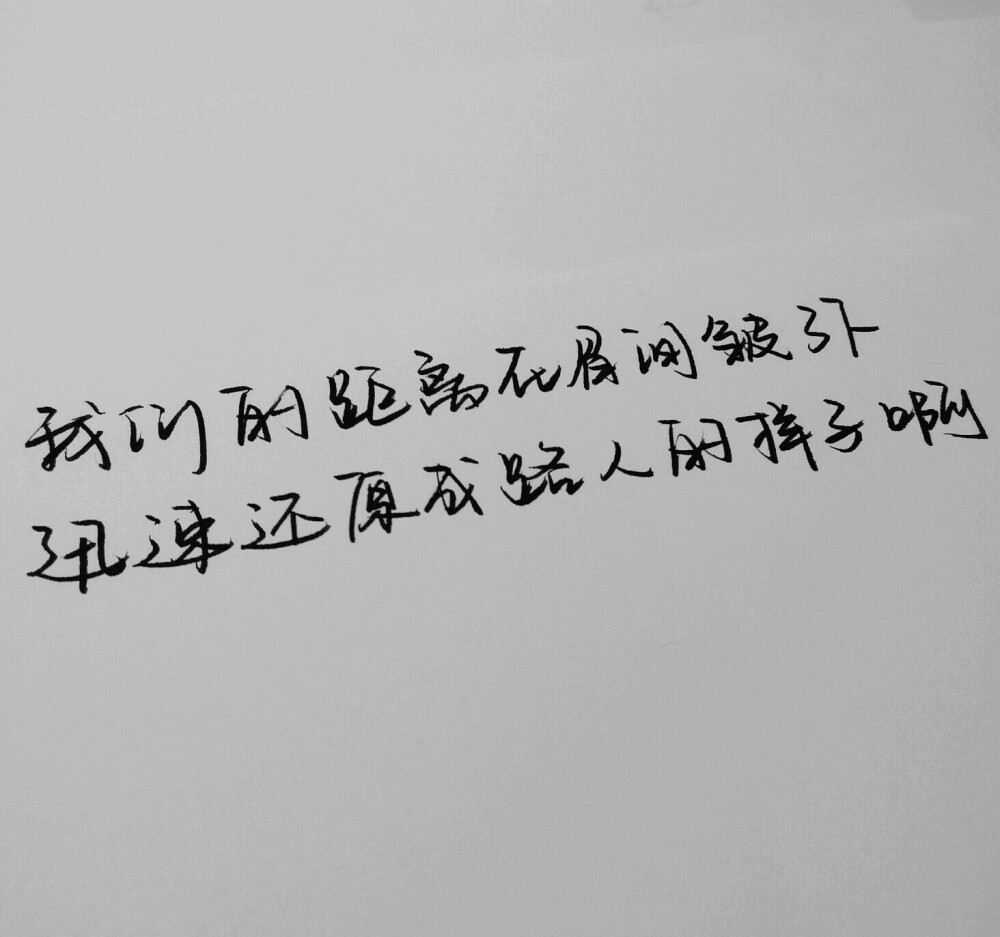 我们的距离在眉间皱了下
迅速还原成路人的样子啊